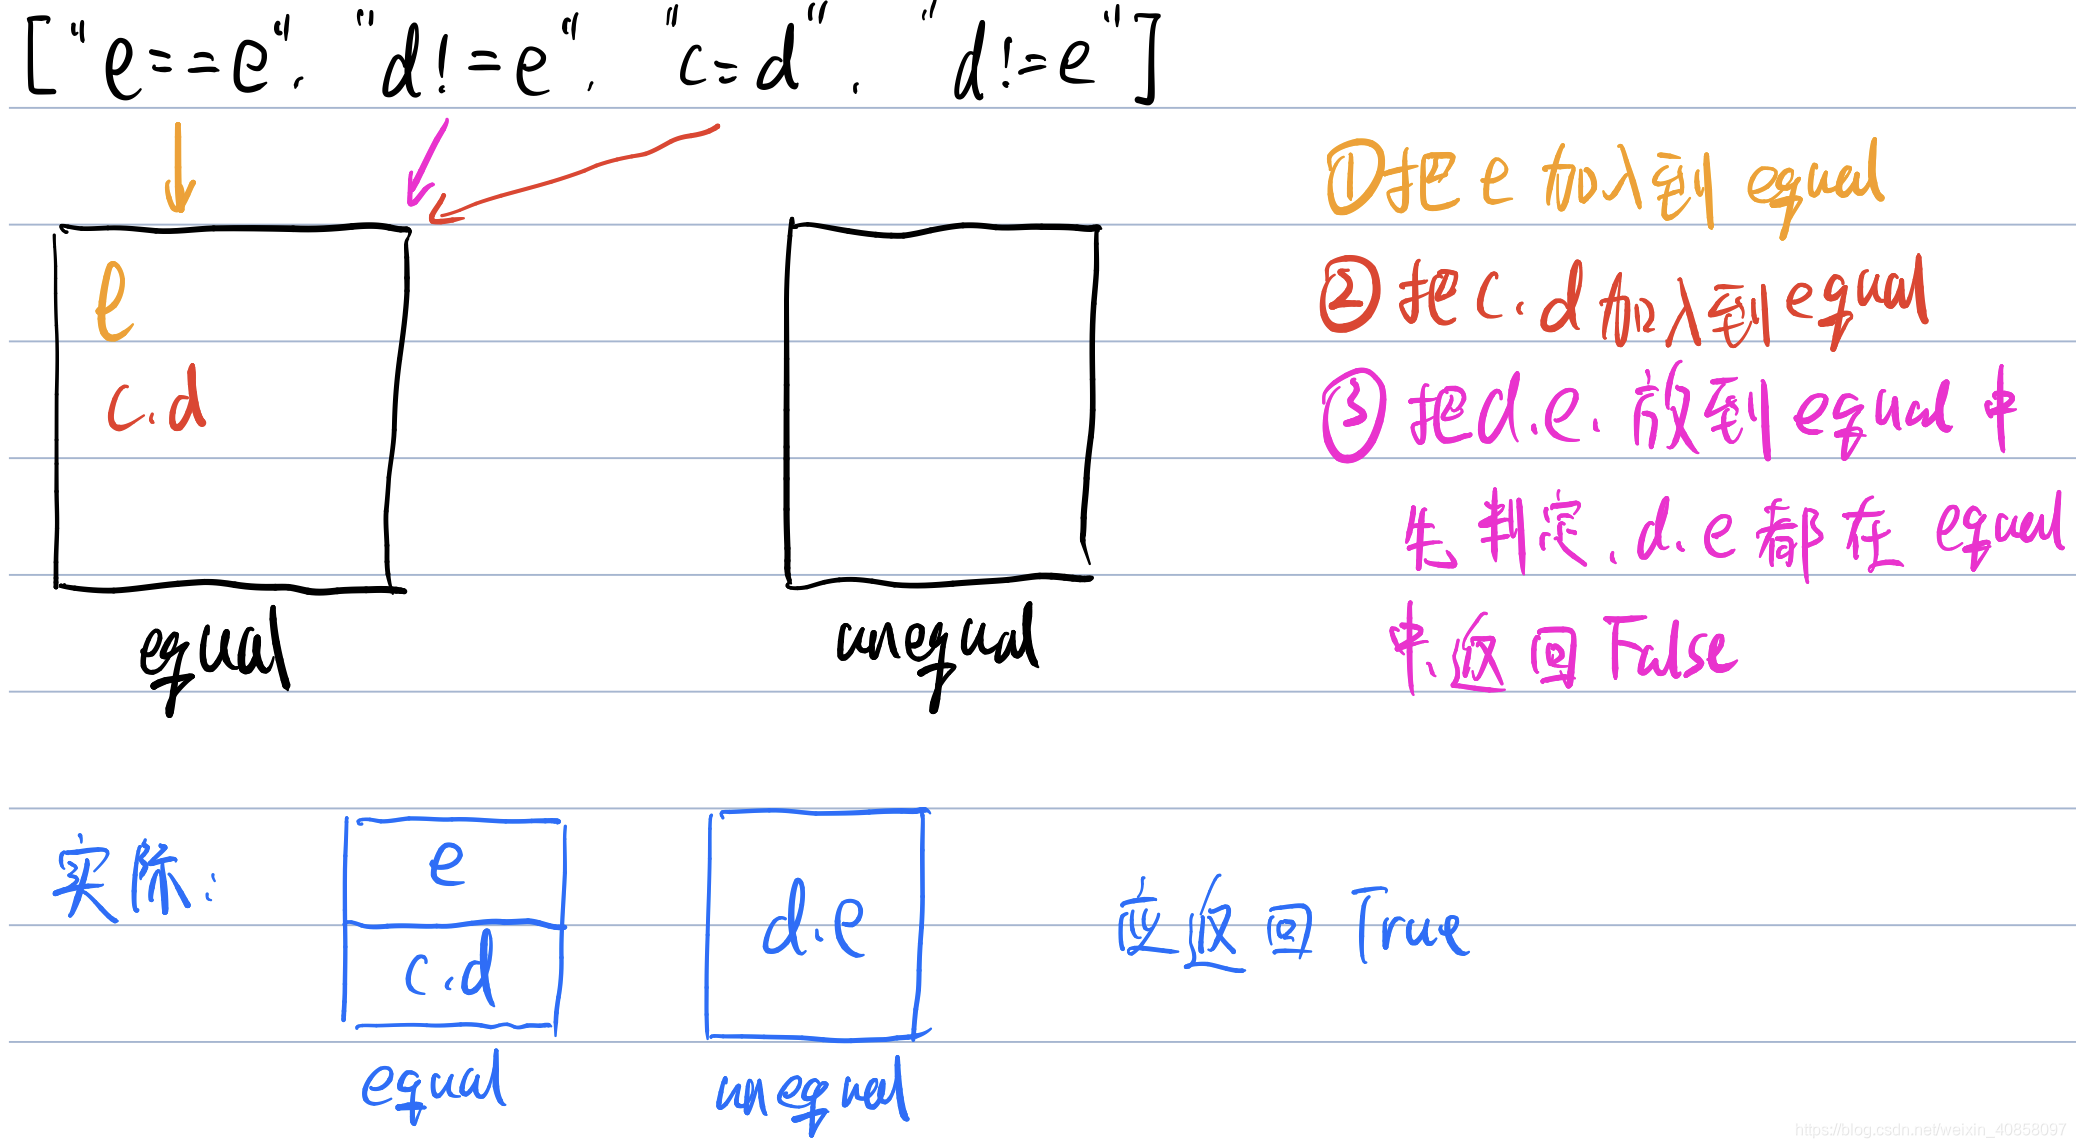 ["e==e", "d!=e", "c=d", "d!=e"]
①把 e 加入到 equal
②把 c.d 加入到 equal
③把 d.e. 放到 equal 中
先判定.d.e 都在 equal
中.返回 False
e
c.d
equal
unequal
实际:
e
c.d
equal
d.e
unequal
应返回 True
https://blog.csdn.net/weixin_40858097